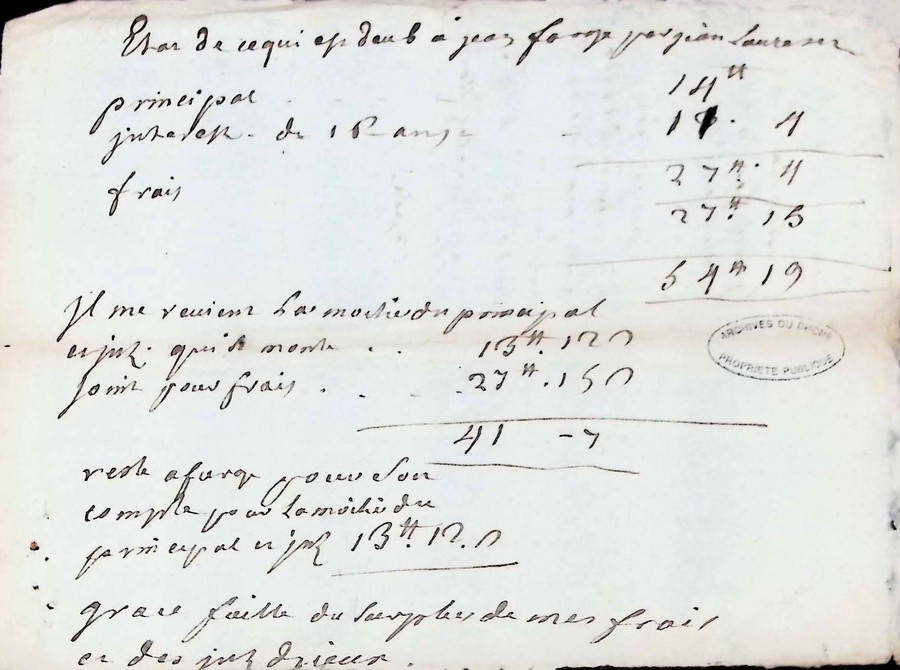 Estat de ce qui est deub a jean farge par jean Laurenson
principal 14 ₶
interest de 16 ans 13. 4
27 ₶. 4
frais 27 ₶. 15
54 ₶ 19
Il me revient la moitie du principal
et int. qui monte .. 13 ₶. 12 s
joint pour frais . 27 ₶. 15 s
41 - 7
reste a farge pour son
compte pour la moitie du
principal et int 13 ₶. 12. s
grace faitte du surplus de mes frais
et des int
ARCHIVES DU RHONE
PROPRIETE PUBLIQUE